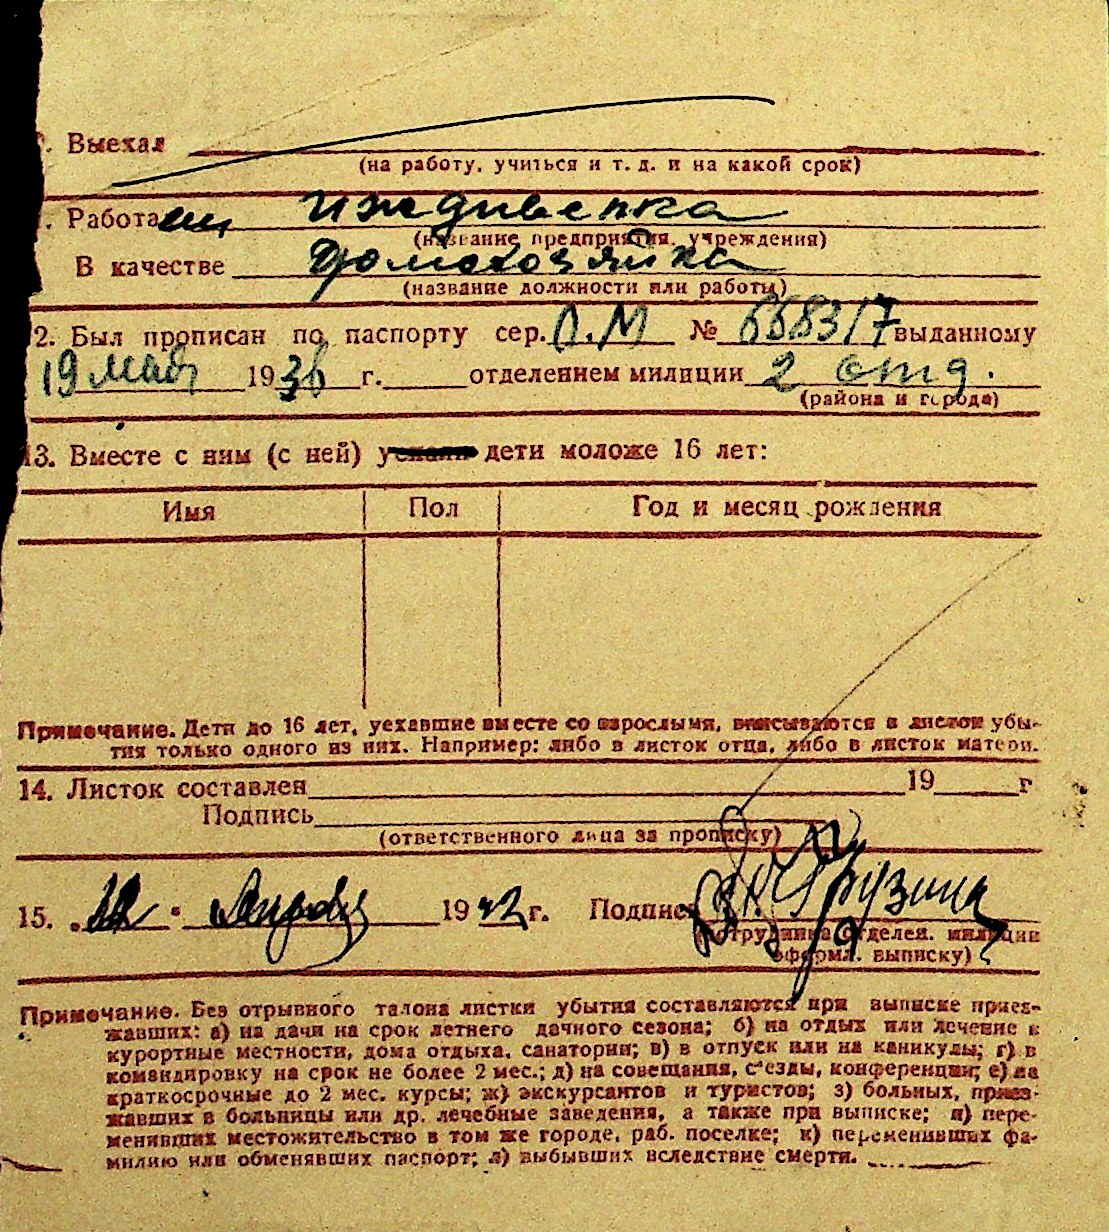 . Выехал
(на работу, учиться и т. д. и на какой срок)
. Работа иждивенка
(название предприятия, учреждения)
В качестве домохозяйка
(название должности или работы)
2. Был прописан по паспорту сер. Л.М № 668317 выданному
19 мая 1936 г. отделением милиции 2 отд.
(района и города)
13. Вместе с ним (с ней) уехали дети моложе 16 лет:
Имя Пол Год и месяц рождения
Примечание. Дети до 16 лет, уехавшие вместе со взрослыми, вписываются в листок убы-
тия только одного из них. Например: либо в листок отца, либо в листок матери.
14. Листок составлен 19 г
Подпись
(ответственного лица за прописку)
15. „ " 1942 г. Подпись Грузина
(сотрудника отделен. милиции
оформ. выписку)
Примечание. Без отрывного талона листки убытия составляются при выписке приез-
жавших: а) на дачи на срок летнего дачного сезона; б) на отдых или лечение в
курортные местности, дома отдыха, санатории; в) в отпуск или на каникулы; г) в
командировку на срок не более 2 мес.; д) на совещания, с'езды, конференции; е) на
краткосрочные до 2 мес. курсы; ж) экскурсантов и туристов; з) больных, приез-
жавших в больницы или др. лечебные заведения, а также при выписке; и) пере-
менивших местожительство в том же городе, раб. поселке; к) переменивших фа-
милию или обменявших паспорт; л) выбывших вследствие смерти.